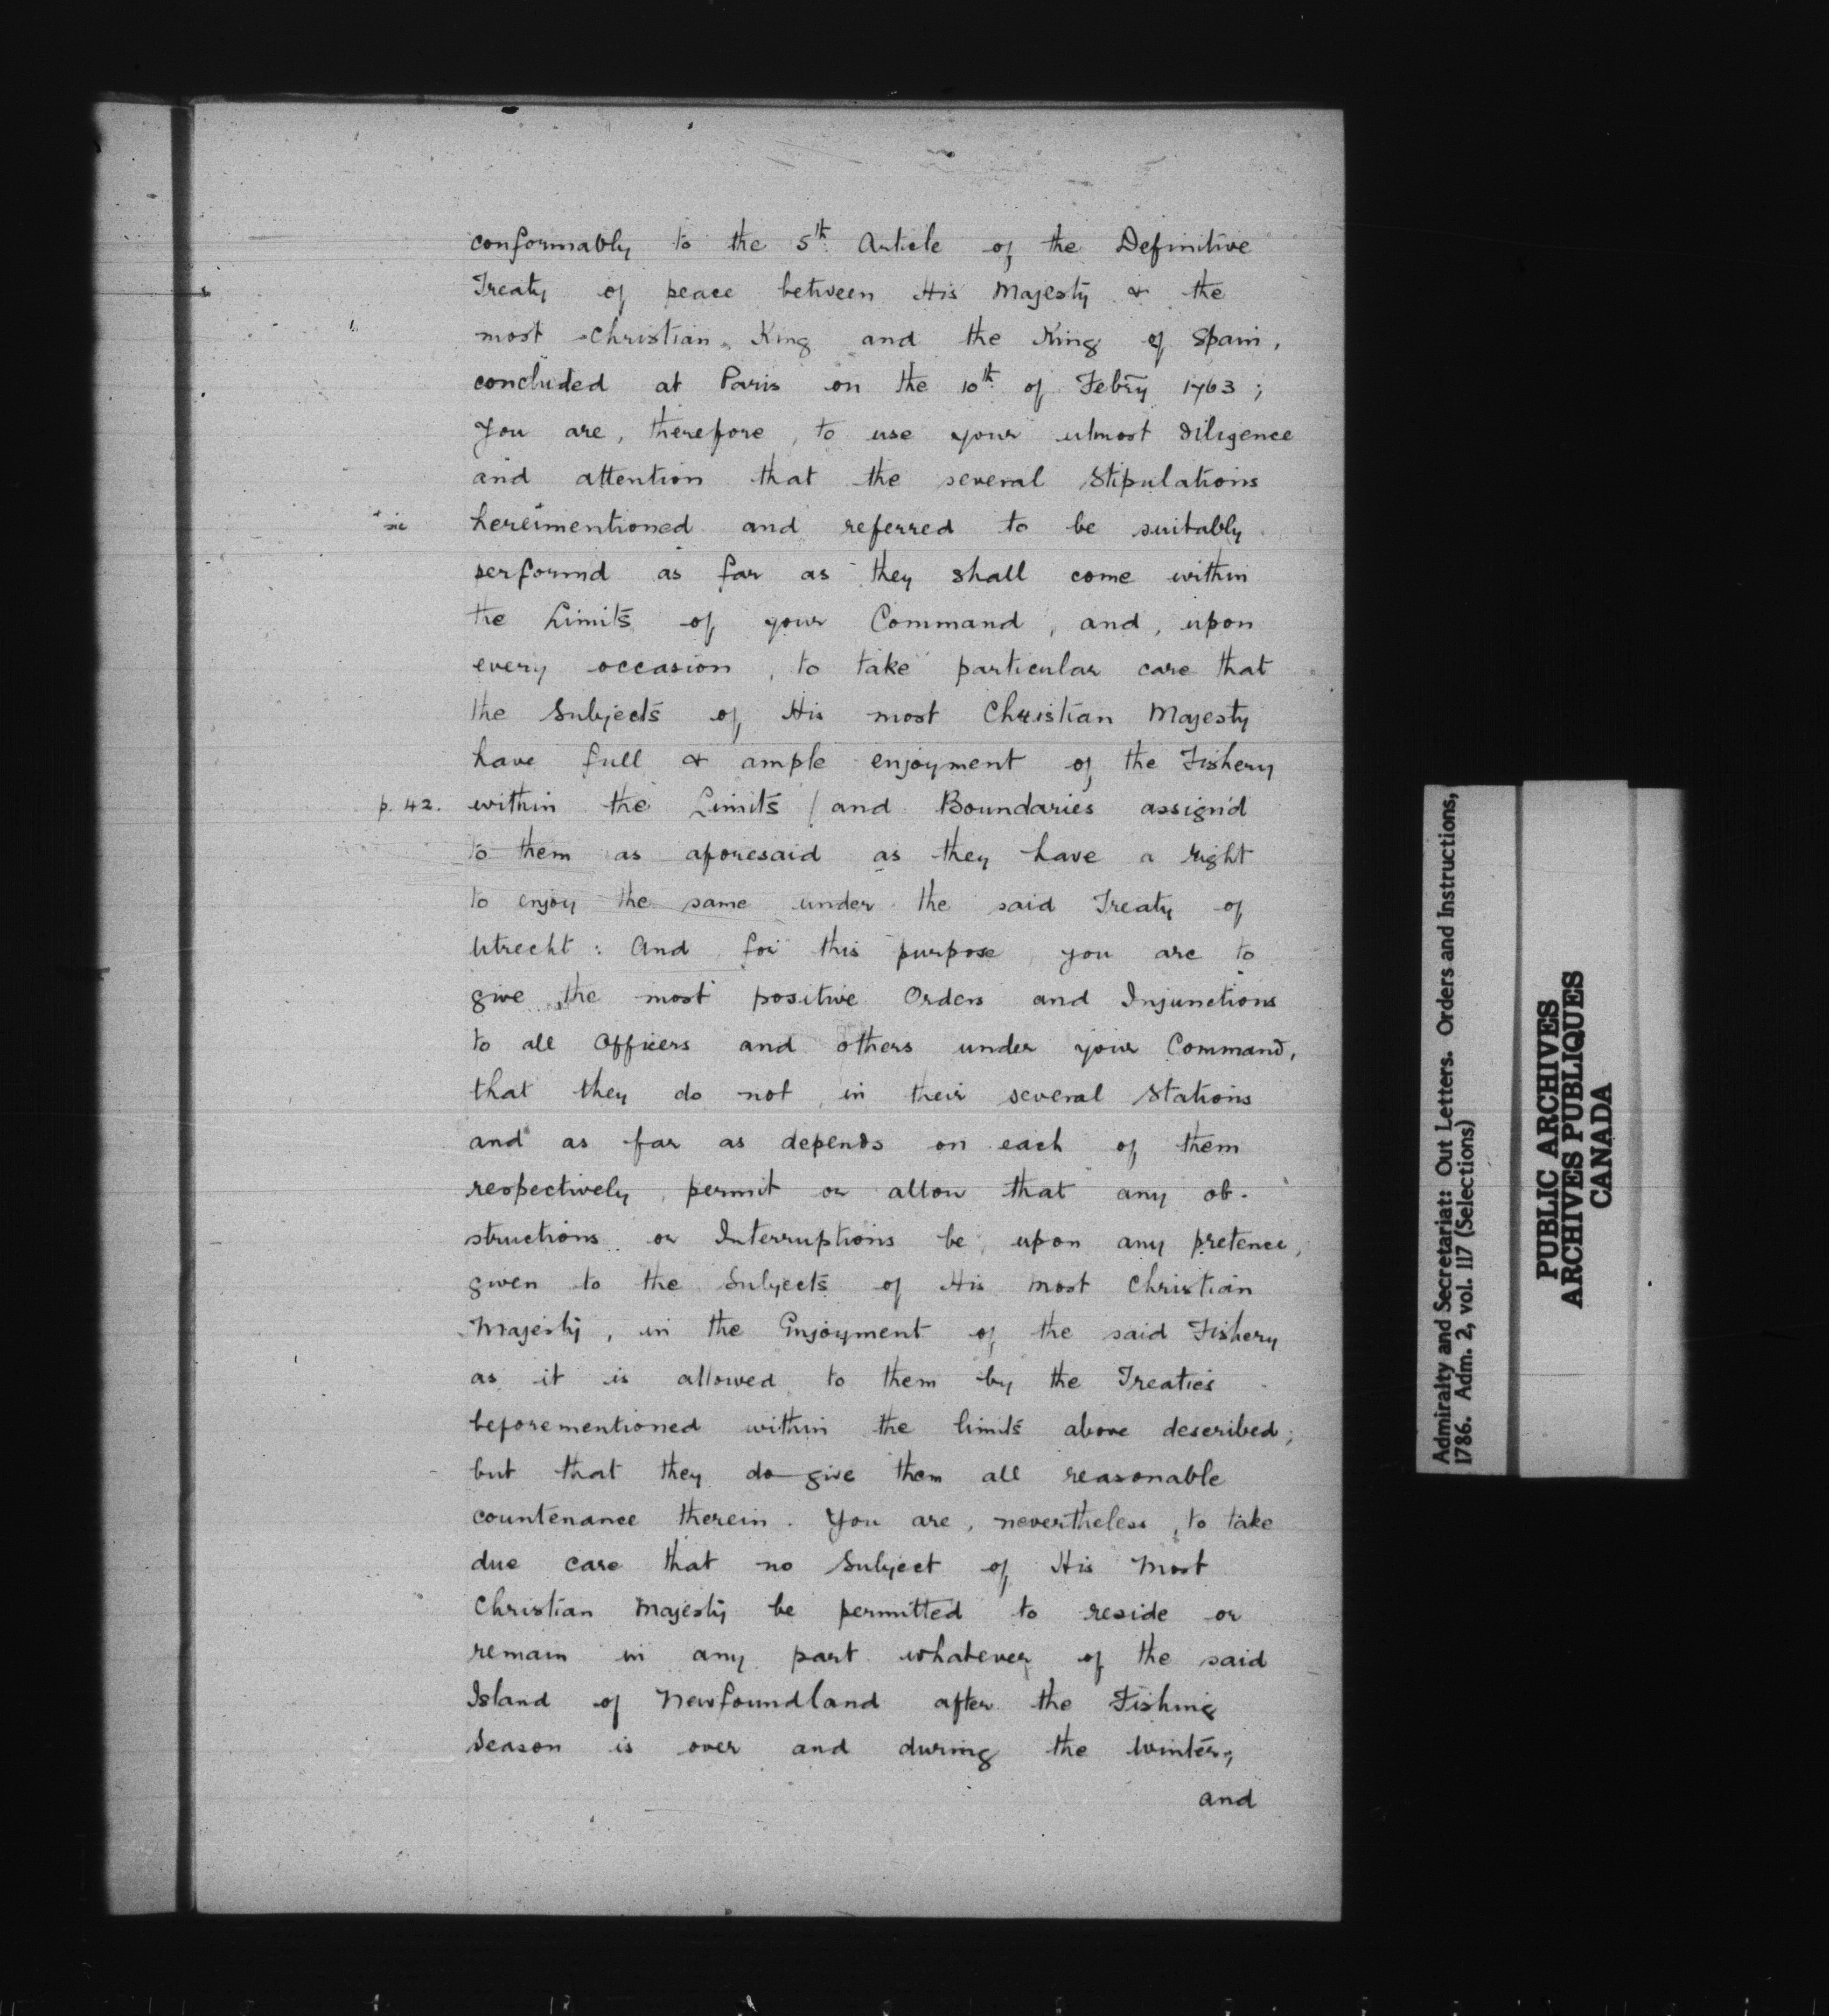 conformably to the 5th Article of the Definitive
Treaty of peace between His Majesty & the
most Christian King and the King of Spain,
concluded at Paris on the 10th of Febry 1763;
You are, therefore, to use your utmost Diligence
and attention that the several Stipulations
* sic hereimentioned and referred to be suitably
performd as far as they shall come within
the Limits of your Command, and, upon
every occasion, to take particular care that
the Subjects of His most Christian Majesty
have full & ample enjoyment of the Fishery
p. 42. within the Limits / and Boundaries assign'd
to them as aforesaid as they have a right
to enjoy the same under the said Treaty of
Utrecht: And for this purpose, you are to
give the most positive Orders and Injunctions
to all Officers and others under your Command,
that they do not in their several Stations
and as far as depends on each of them
respectively, permit or allow that any ob-
structions or Interruptions be, upon any pretence,
given to the Subjects of His most Christian
Majesty, in the Enjoyment of the said Fishery
as it is allowed to them by the Treaties
beforementioned within the limits above described;
but that they do give them all reasonable
countenance therein. You are, nevertheless, to take
due care that no Subject of His Most
Christian Majesty be permitted to reside or
remain in any part whatever of the said
Island of Newfoundland after the Fishing
Season is over and during the Winter;
and
Admiralty and Secretariat: Out Letters. Orders and Instructions,
1786. Adm. 2, vol. 117 (Selections)
PUBLIC ARCHIVES
ARCHIVES PUBLIQUES
CANADA